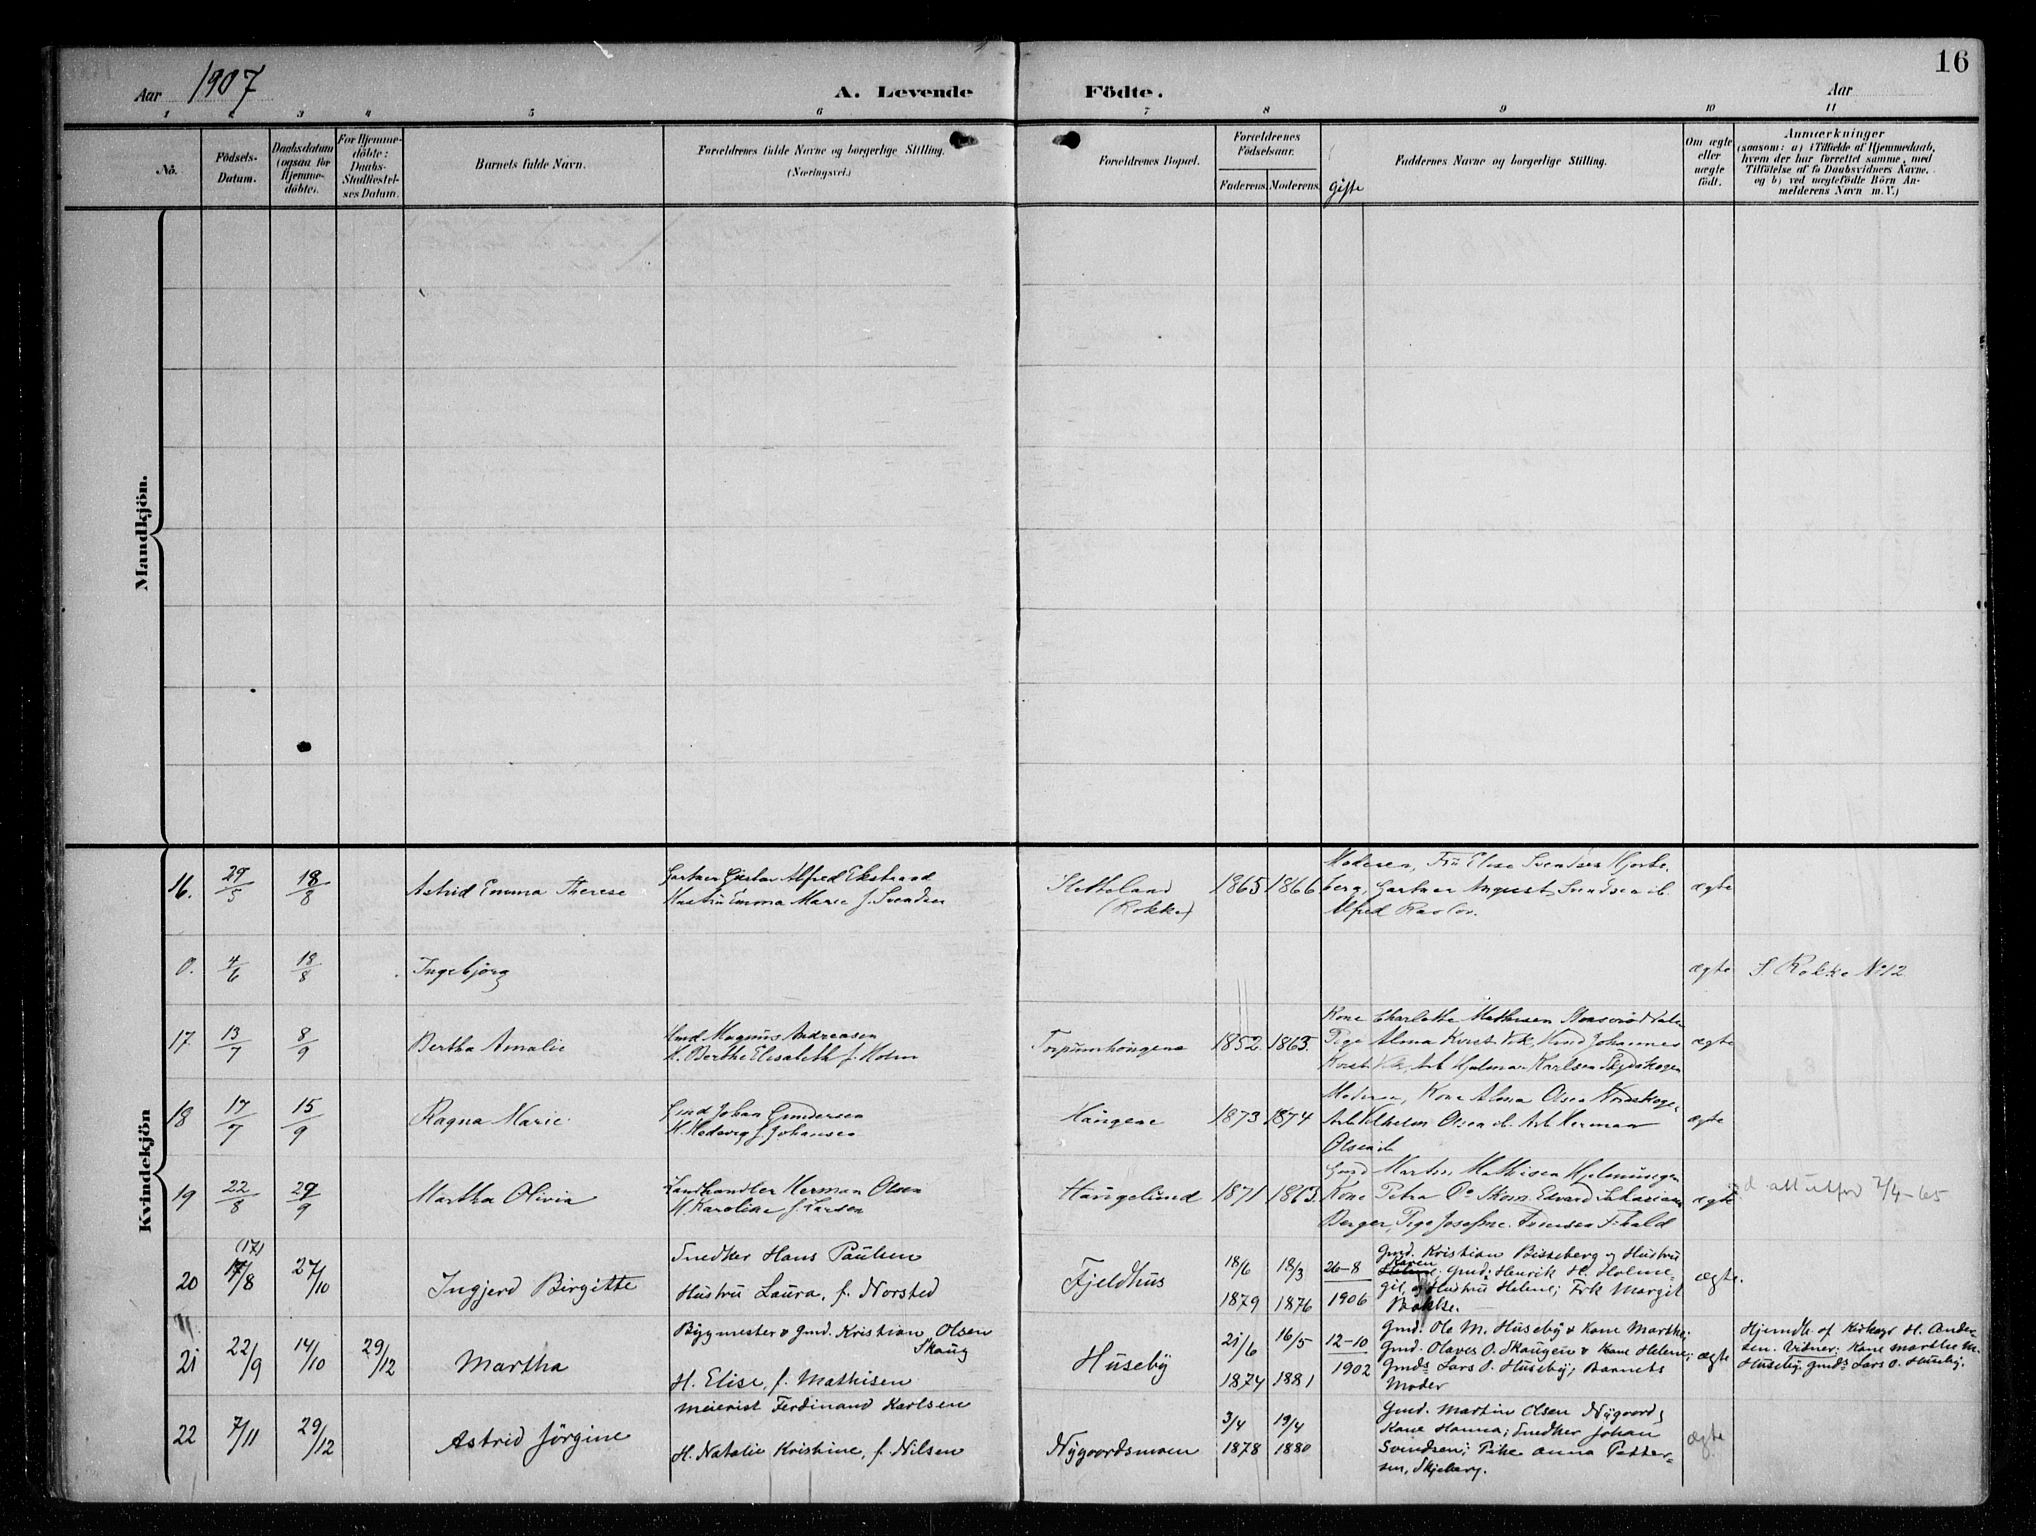 16
Aar 1907
A. Levende Födte.
Aar
1 2 3 4 5 6 7 8 9 10 11
No.
Födsels-
Datum.
Daabsdatum
(ogsaa for
Hjemme-
döbte).
For Hjemme-
döbte:
Daabs-
Stadfæstel-
ses Datum.
Barnets fulde Navn.
Forældrenes fulde Navne og borgerlige Stilling.
(Næringsvei.)
Forældrenes Bopæl.
Forældrenes
Födselsaar.
Faderens. Moderens.
Gifte
Faddernes Navne og borgerlige Stilling.
Om ægte
eller
uægte
født.
Anmærkninger
(saasom: a) i Tilfælde af Hjemmedaab,
hvem der har forrettet samme, med
Tilföielse af to Daabsvidners Navne.
og b) ved uægtefödte Börn An-
melderens Navn m. V.)
Mandkjön.
Kvindekjön
16. 29/5 18/8 Astrid Emma Therese
Gartner Gustav Alfred Ekstrand
Hustru Emma Marie f. Svendsen
Stetteland
(Rokke)
1865 1866
Moderen, Fru Elise Svendsen Hjorts-
berg, Gartner August Svendsen ib.
Alfred
ægte
0. 4/6 18/8 Ingebjørg
ægte
S Rokke No 12
17 13/7 8/9 Bertha Amalie
Gmd Magnus Andreasen
H. Berthe Elisabeth f. Holm
Torpumhougene
1852. 1863.
Kone Charlotte Mathisen
Pige Alma
Arb Hjalmar Karlsen
ægte
18 17/7 15/9 Ragna Marie
Gmd Johan Gundersen
H. Hedevig f Johansen
Haugene
1873 1874
Moderen, Kone Alma Olsen
Arb Vilhelm Olsen ib. Arb Herman
Olsen ib
ægte
19 22/8 29/9 Martha Olivia
Landhandler Herman Olsen
H. Karoline f. Larsen
Haugelund
1871 1863.
Gmd Martin Mathisen
Kone Petra Do Skom. Edvard
Berger, Pige Josefine
ægte
att utford 7/4-65
20 (17) 17/8 27/10 Ingjerd Birgitte
Snedker Hans Paulsen
Hustru Laura, f. Norsted
Fjeldhus
18/6 1879 18/3 1876
26-8 1906
Gmd. Kristian Bisseberg og Hustru
Karen Gmd. Henrik H. Holme-
gil, og Hustru Helene; Frk Margit
Bakke.
ægte.
21 22/9 14/10 29/12 Martha
Bygmester & Gmd. Kristian Olsen
Skaug
H. Elise, f. Mathisen
Huseby
21/6 1874 16/5 1881
12-10 1902
Gmd. Ole M. Huseby & Kone Marthe;
Gmd. Olaves O. Skaugen & Kone Helene;
Gmds. Lars O. Huseby; Barnets
Moder
ægte
Hjemdb. af Kirkesgr H. Ander-
sen. Vidner: Kone Marthe M.
Huseby, Gmds Lars O. Huseby.
22 7/11 29/12 Astrid Jørgine
Meierist Ferdinand Karlsen
H. Natalie Kristine, f. Nilsen
Nygaardsmoen
3/4 1878 19/4 1880
Gmd. Martin Olsen Nygaard;
Kone Hanna; Snedker Johan
Svendsen; Pike Anna Petter-
sen, Skjeberg.
ægte